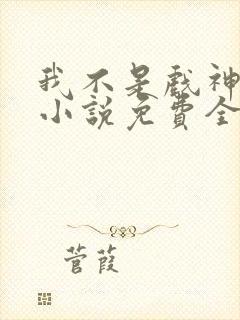 我不是戲神
小說免費全
菅葭